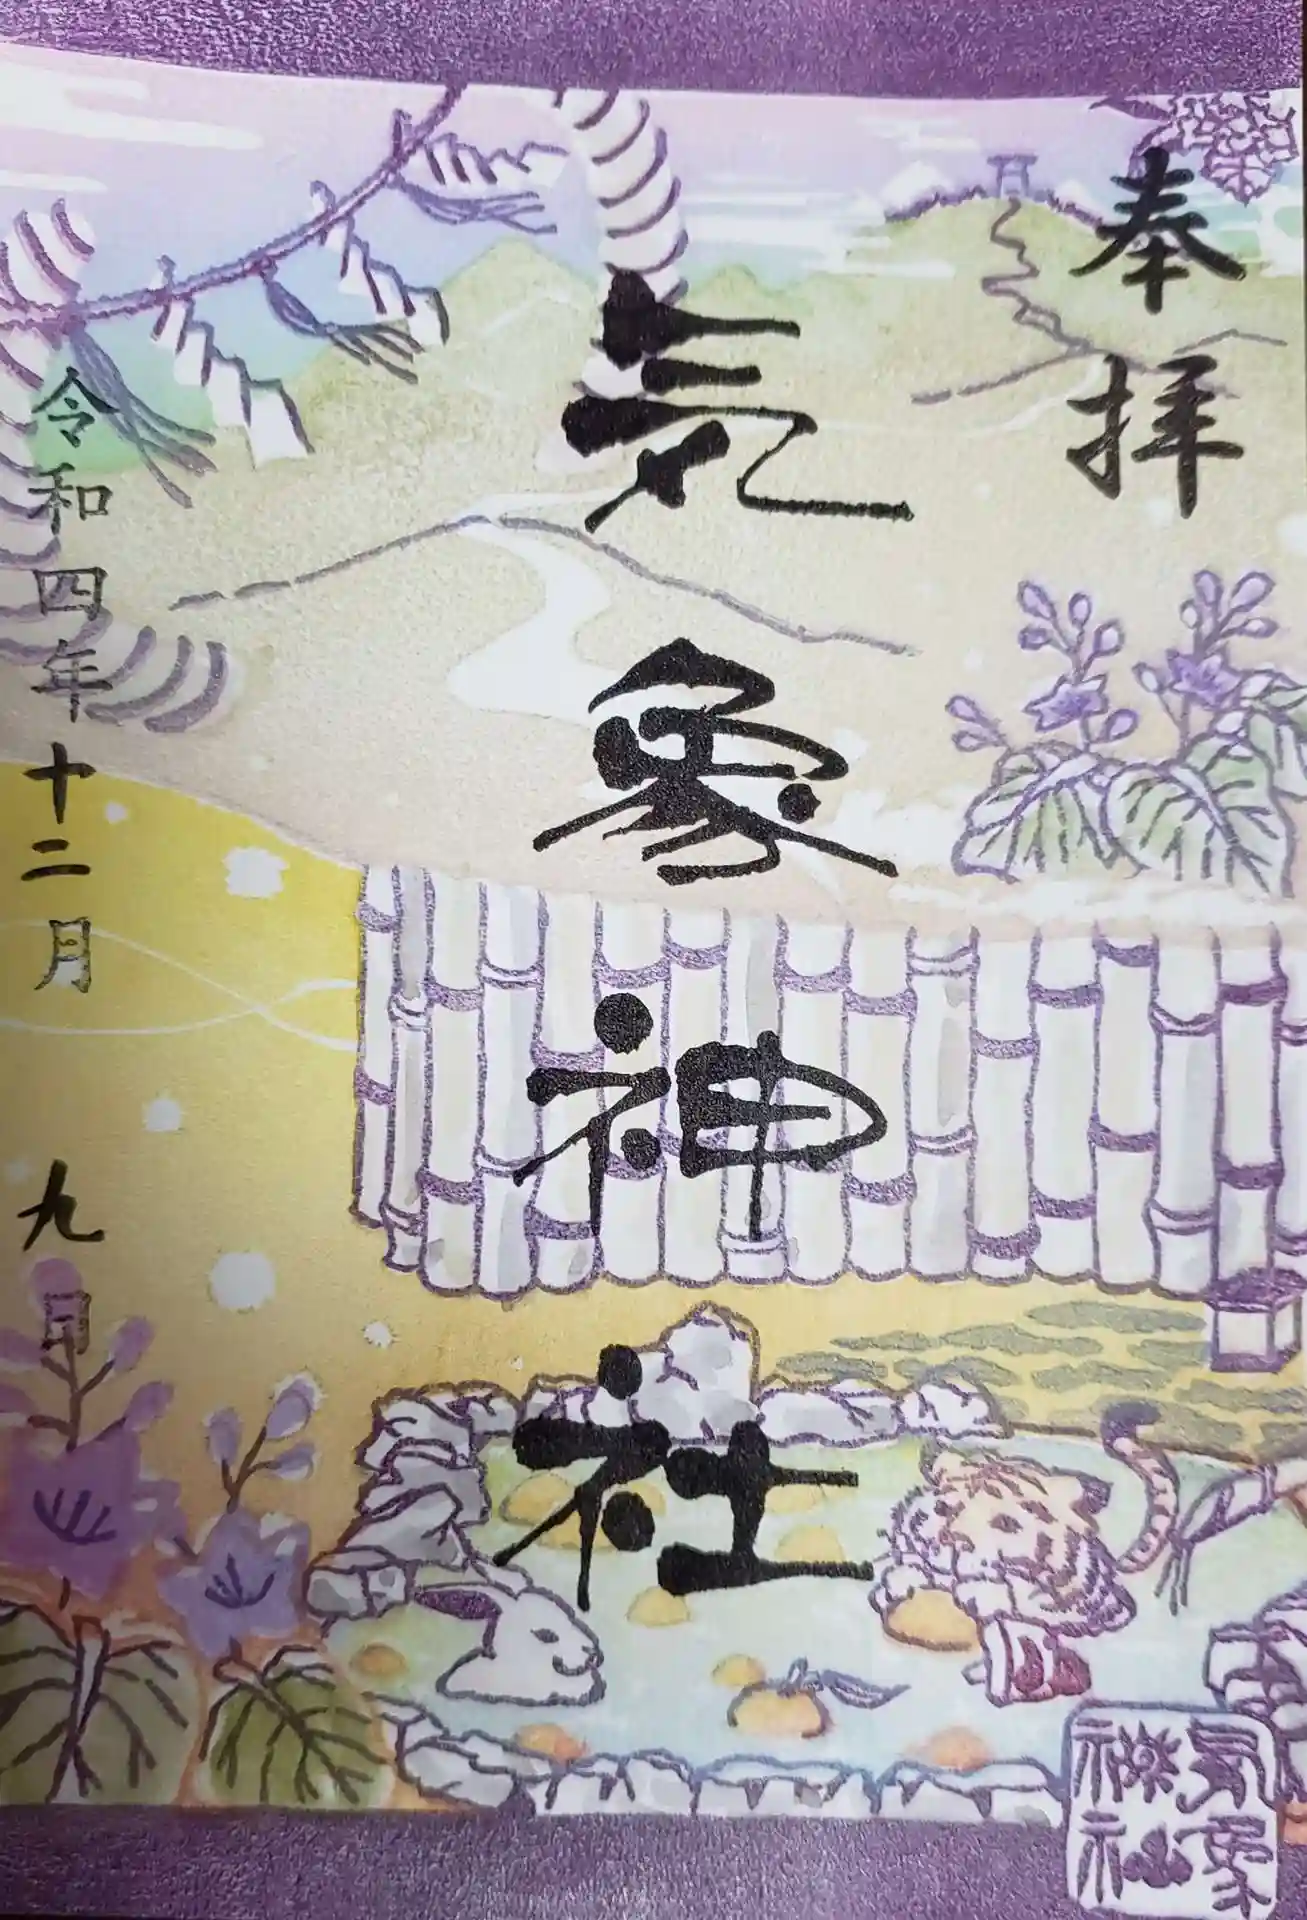 奉拝
気象神社
令和四年十二月九日
気象
神社